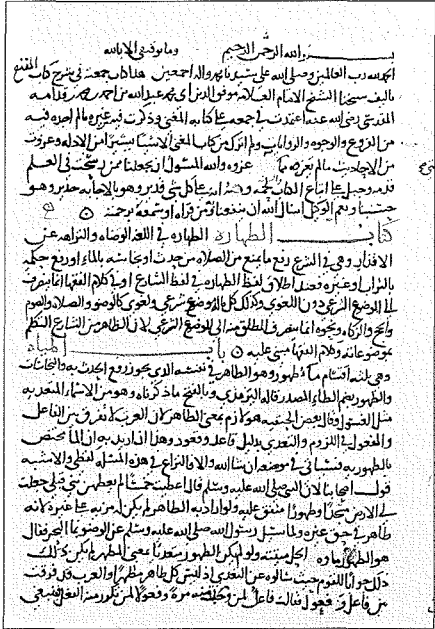 بسم الله الرحمن الرحيم وما توفيقي الا بالله
الحمد لله رب العالمين وصلى الله على سيدنا محمد واله اجمعين هذا كتاب جمعته في شرح كتاب المقنع
تاليف شيخنا الشيخ الامام العلامة موفق الدين ابي محمد عبد الله بن احمد بن محمد بن قدامه
المقدسي رضي الله عنه اعتمدت في جمعه على كتابه المغني وذكرت فيه من غيره مالم اجده فيه
من الفروع والوجوه والروايات ولم اترك من كتاب المغني الا شيئا يسيرا من الادله وعزوت
من الاحاديث مالم يعز مما عزوه والله المسئول ان يجعلنا ممن رسخت في العلم
قدمه وجبل على اتباع الكتاب والسنة انه على كل شي قدير وهو بالاجابه جدير وهو
حسبنا ونعم الوكيل اسال الله ان ينفعنا به ومن قراه او سمعه برحمته
كتاب الطهاره الطهاره في اللغة الوضاه والنزاهه عن
الاقذار وهي في الشرع رفع ما يمنع من الصلاه من حدث او نجاسه بالماء او رفع حكمه
بالتراب او غيره فعند اطلاق لفظ الطهاره في لفظ الشارع او في كلام الفقها انما ينصرف
الى الموضوع الشرعي دون اللغوي وكذلك كل ماله موضوع شرعي ولغوي كالوضو والصلاه والصوم
والحج والزكاه ونحوه انما ينصرف المطلق منه الى الموضوع الشرعي لان الظاهر من الشارع التكلم
بموضوعاته وكلام الفقها مبني عليه باب المياه
وهي ثلثه اقسام ماء طهور وهو الطاهر في نفسه الذي يجوز رفع الحدث به والنجاسات
والطهور بضم الطاء المصدر قاله اليزيدي وبالفتح ما ذكرناه وهو من الاسماء المتعديه
مثل الغسول وقال بعض الحنفيه هو لازم بمعنى الطاهر لان العرب لا تفرق بين الفاعل
والمفعول في اللزوم والتعدي بدليل قاعد وقعود وهذا ان اريد به ان الماء مختص
بالطهوريه فسياتي في موضعه ان شاء الله والا فالنزاع في هذه المسئله لفظي والاشبه
قول اصحابنا لان النبي صلى الله عليه وسلم قال اعطيت خمسا لم يعطهن نبي قبلي جعلت
لي الارض مسجدا وطهورا متفق عليه ولو اراد به الطاهر لم يكن له مزيه على غيره لانه
طاهر في حق غيره ولما سئل رسول الله صلى الله عليه وسلم عن الوضو بماء البحر فقال
هو الطهور ماؤه الحل ميتته ولو لم يكن الطهور متعديا بمعنى المطهر لم يكن ذلك
جوابا للقوم حيث سالوه عن التعدي اذ ليس كل طاهر مطهرا والعرب قد فرقت
بين فاعل وفعول فقالت فاعل لمن وجد منه مره وفعول لمن تكرر منه الفعل فينبغي